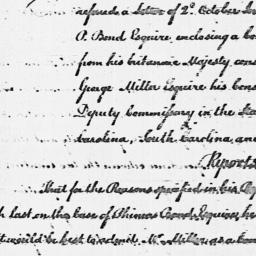 referred a letter of 2d. October
P. Bond Esquire enclosing a
from his britannic Majesty
George Miller Esquire his
Deputy Commissary in the
Carolina, South Carolina, and
Report
That for the Reasons specified in his
last on the Case of Phineas Bond Esquire, he
it would be best to admit Mr. Miller as a